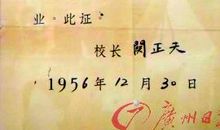 业。此证。
校长 阕正天
1956年12月30日
廣州日